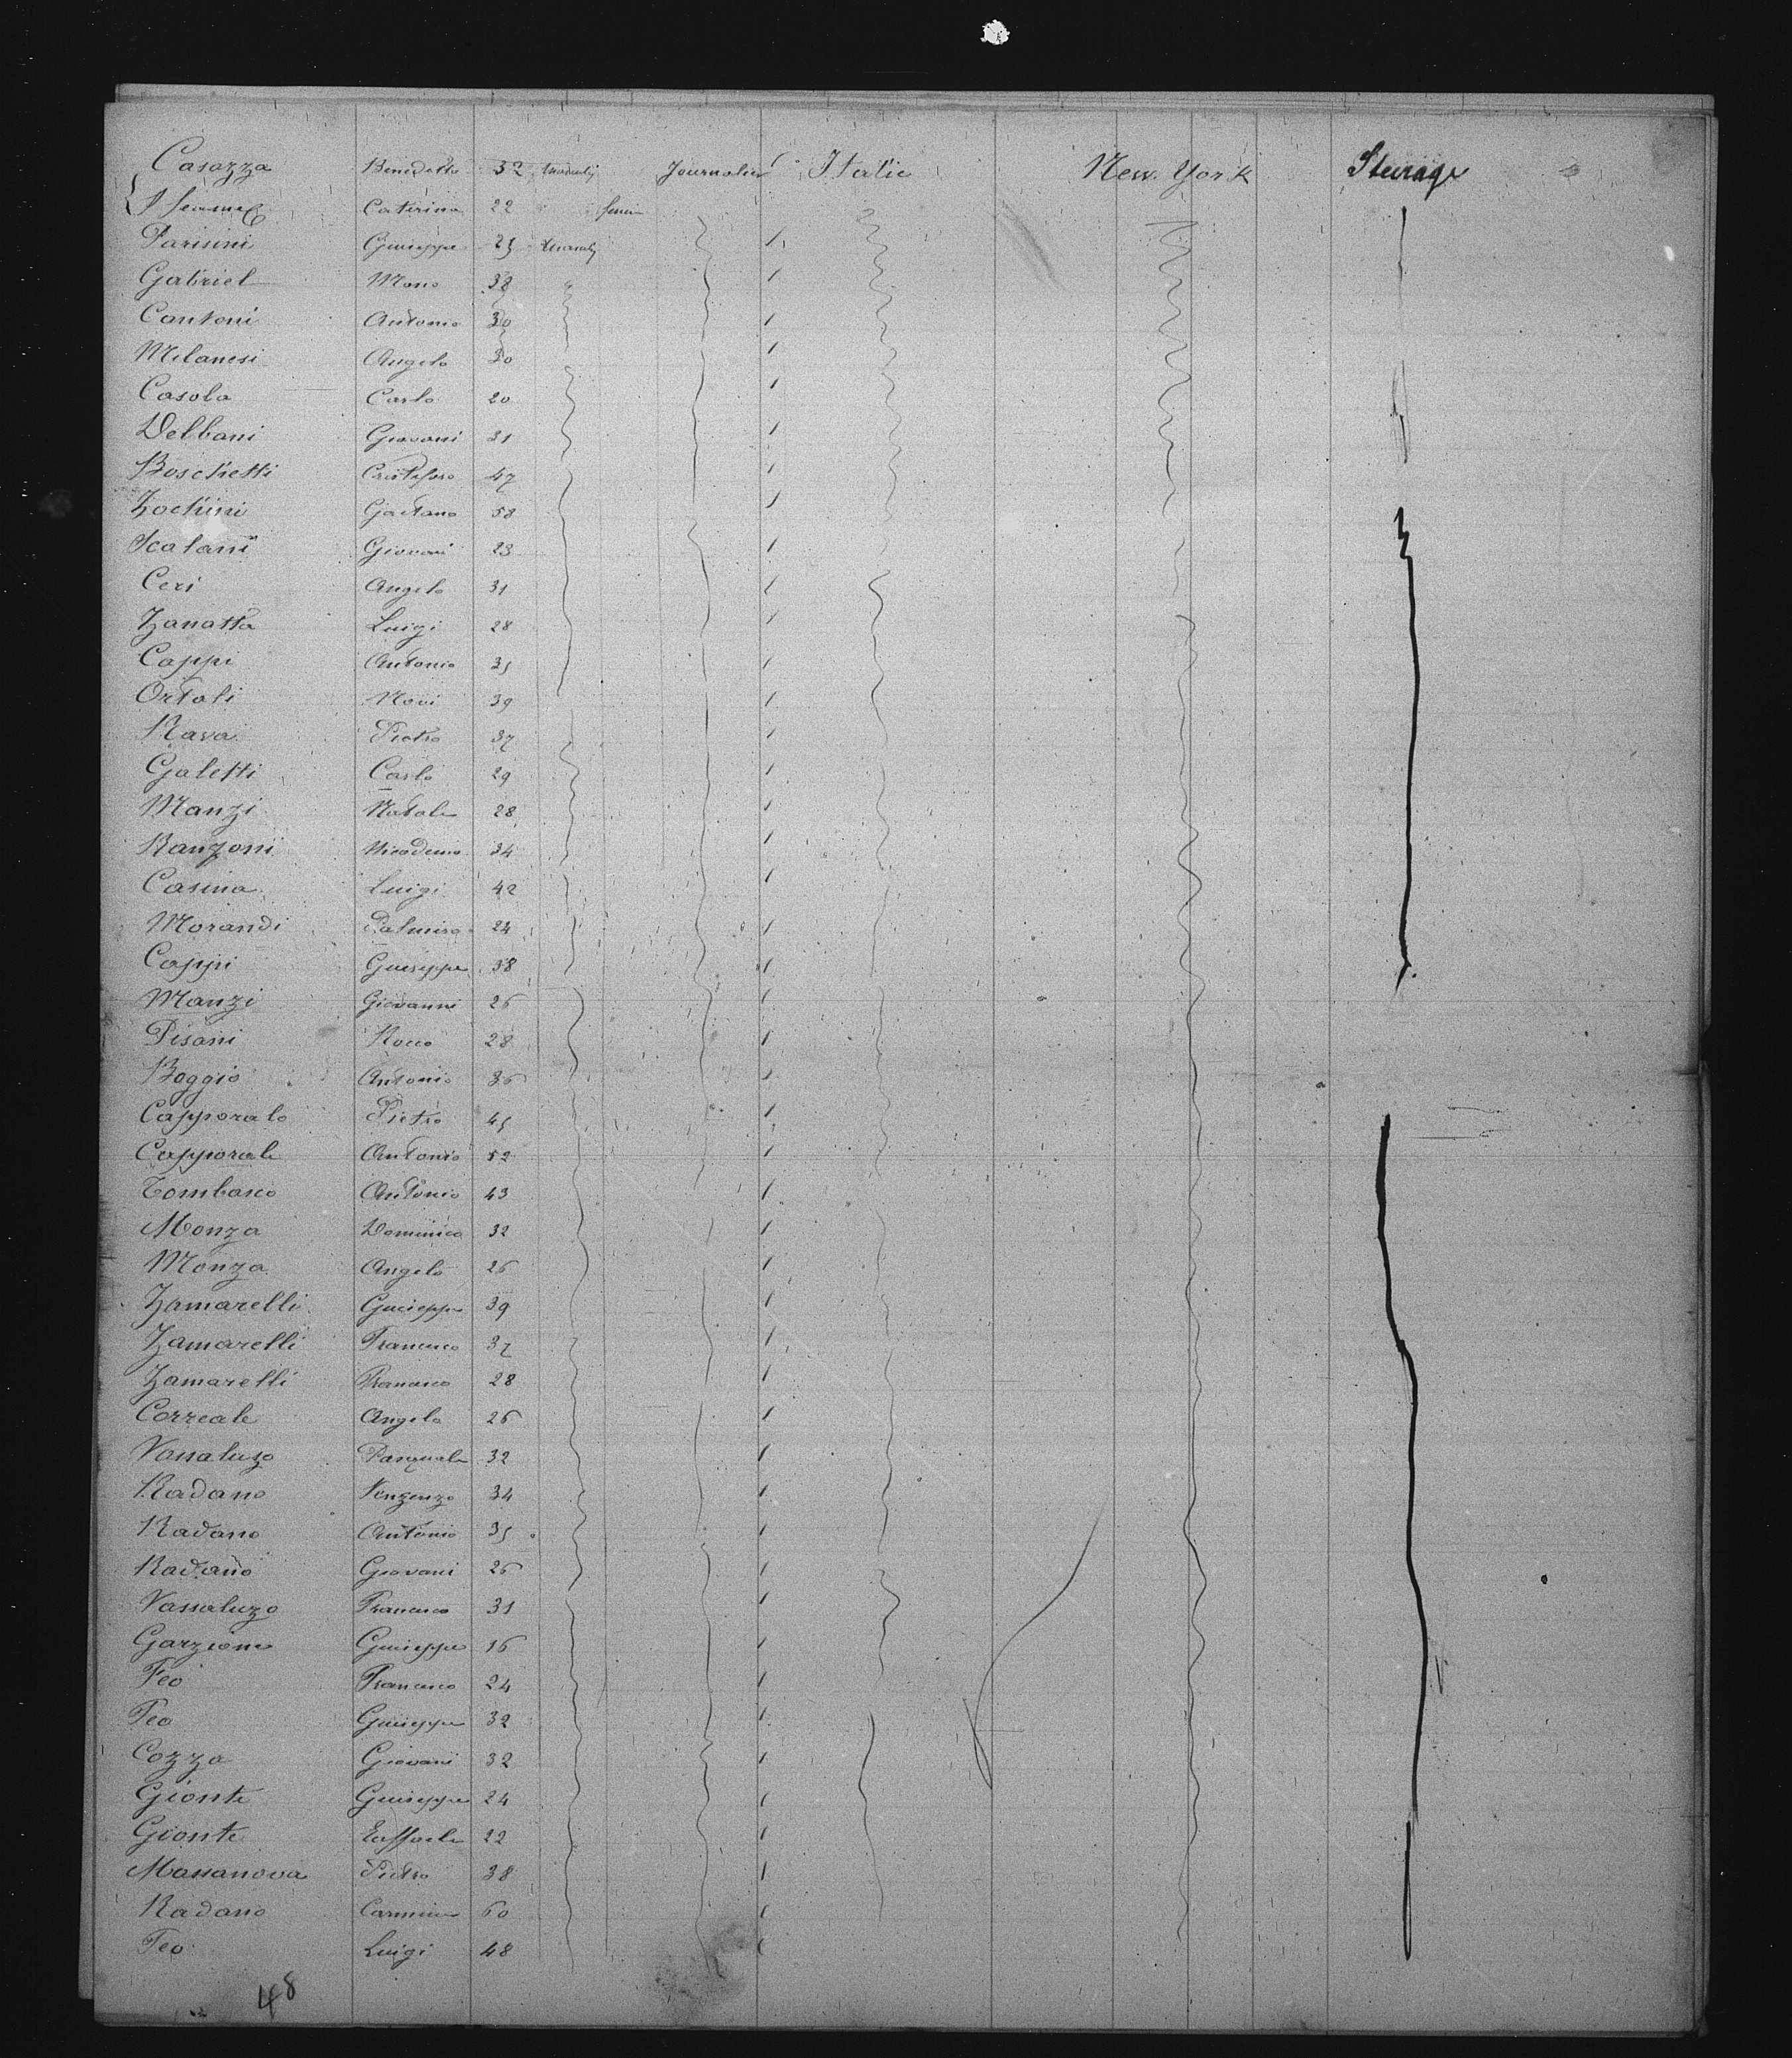 Casazza Benedetto 32 Journalier Italie New York Steerage
Sa femme Caterina 22
Parisini Guiseppe 25
Gabriel Mono 38
Cantoni Antonio 30
Milanesi Angelo 30
Casola Carlo 20
Delbani Giovani 31
Boschetti Cristoforo 47
Zochini Gaetano 58
Scalani Giovani 23
Ceri Angelo 31
Zanatta Luigi 28
Cappi Antonio 35
Ortoli 39
Rava Pietro 37
Galetti Carlo 29
Manzi Natale 28
Ranzoni Nicodemo 34
Casina Luigi 42
Morandi Palmiro 24
Cappi Guiseppe 38
Manzi Giovanni 26
Pisani Rocco 28
Boggio Antonio 36
Capporale Pietro 45
Capporale Antonio 52
Tombasco Antonio 43
Monza Dominico 32
Monza Angelo 26
Zamarelli Guiseppe 39
Zamarelli Francesco 37
Zamarelli Francesco 28
Correale Angelo 26
Vassaluzo Pasquale 32
Radano Venzenzo 34
Radano Antonio 35
Radano Giovani 26
Vassaluzo Francesco 31
Garzione Guiseppe 16
Feo Francesco 24
Feo Guiseppe 32
Cozza Giovani 32
Gionte Guiseppe 24
Gionte Raffaele 22
Massanova Pietro 38
Radano Carmine 60
Feo Luigi 48
48